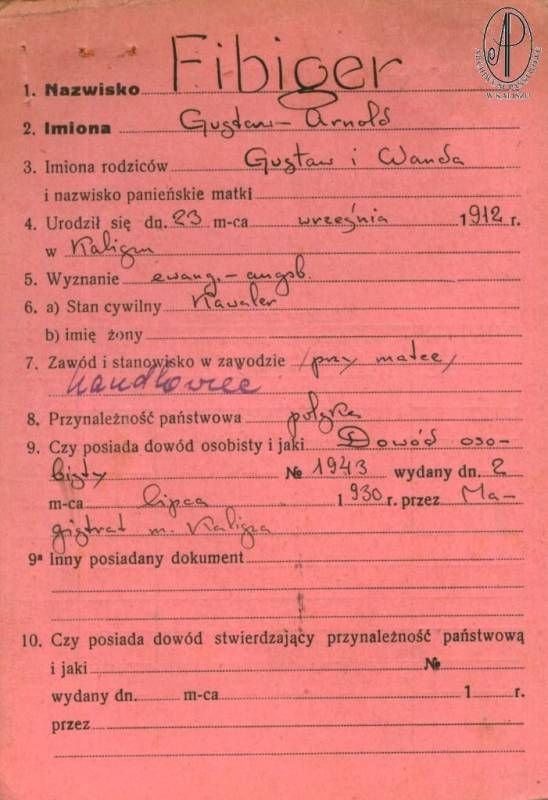 ARCHIWUM PAŃSTWOWE
W KALISZU
1. Nazwisko Fibiger
2. Imiona Gustaw-Arnold
3. Imiona rodziców Gustaw i Wanda
i nazwisko panieńskie matki
4. Urodził się dn. 23 m-ca września 1912 r.
w Kaliszu
5. Wyznanie ewang.-augsb.
6. a) Stan cywilny Kawaler
b) imię żony
7. Zawód i stanowisko w zawodzie /przy matce/
handlowiec
8. Przynależność państwowa polska
9. Czy posiada dowód osobisty i jaki Dowód oso-
bisty № 1943 wydany dn. 2
m-ca lipca 1930 r. przez Ma-
gistrat m. Kalisza
9ª Inny posiadany dokument
10. Czy posiada dowód stwierdzający przynależność państwową
i jaki №
wydany dn. m-ca 1 r.
przez